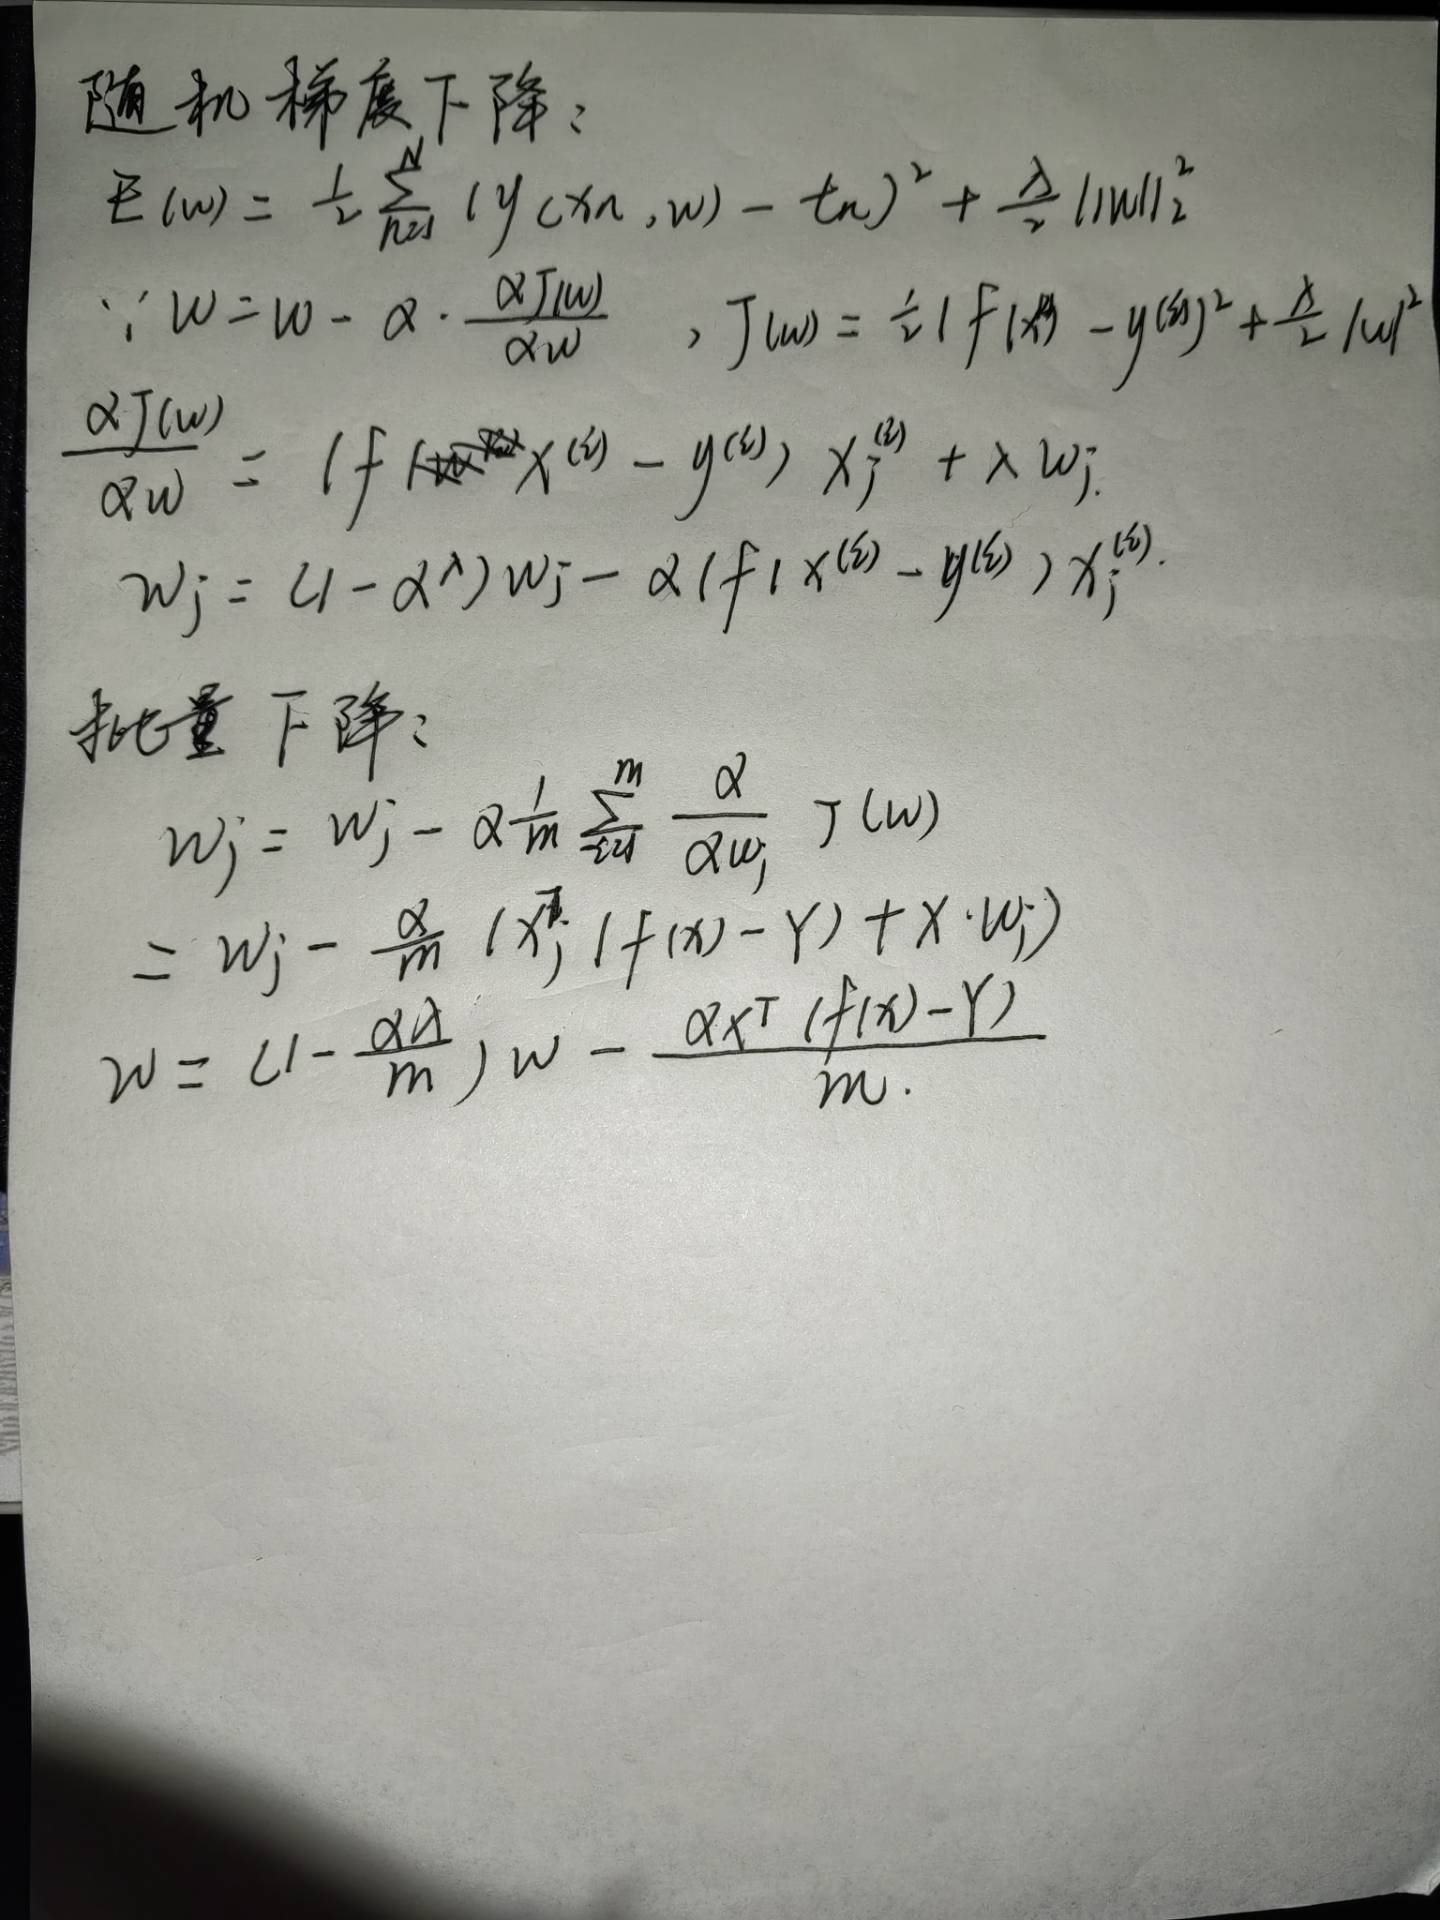 随机梯度下降:
E(w) = 1/2 ∑_{n=1}^{N} (y(xn, w) - tn)² + λ/2 ||w||₂²
∵ w = w - α · αJ(w)/αw , J(w) = 1/2 (f(x^{(i)}) - y^{(i)})² + λ/2 |w|²
αJ(w)/αw = (f(x^{(i)} - y^{(i)}) x_j^{(i)} + λ w_j.
w_j = (1 - αλ) w_j - α(f(x^{(i)} - y^{(i)}) x_j^{(i)}.
批量下降:
w_j = w_j - α 1/m ∑_{i=1}^{m} α/αw_j J(w)
= w_j - α/m (x_j^T (f(x) - Y) + X · w_j)
w = (1 - αλ/m) w - αx^T (f(x) - Y)/m.